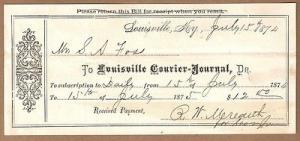 Please return this Bill for receipt when you remit.
Louisville, Ky, July 15th 1874
Mr. S. A. Foss
To Louisville Courier-Journal, Dr.
To subscription to Daily from 15th July 1874
To 15th of July 1875 $12.00
Received Payment,
R. W. Meredith